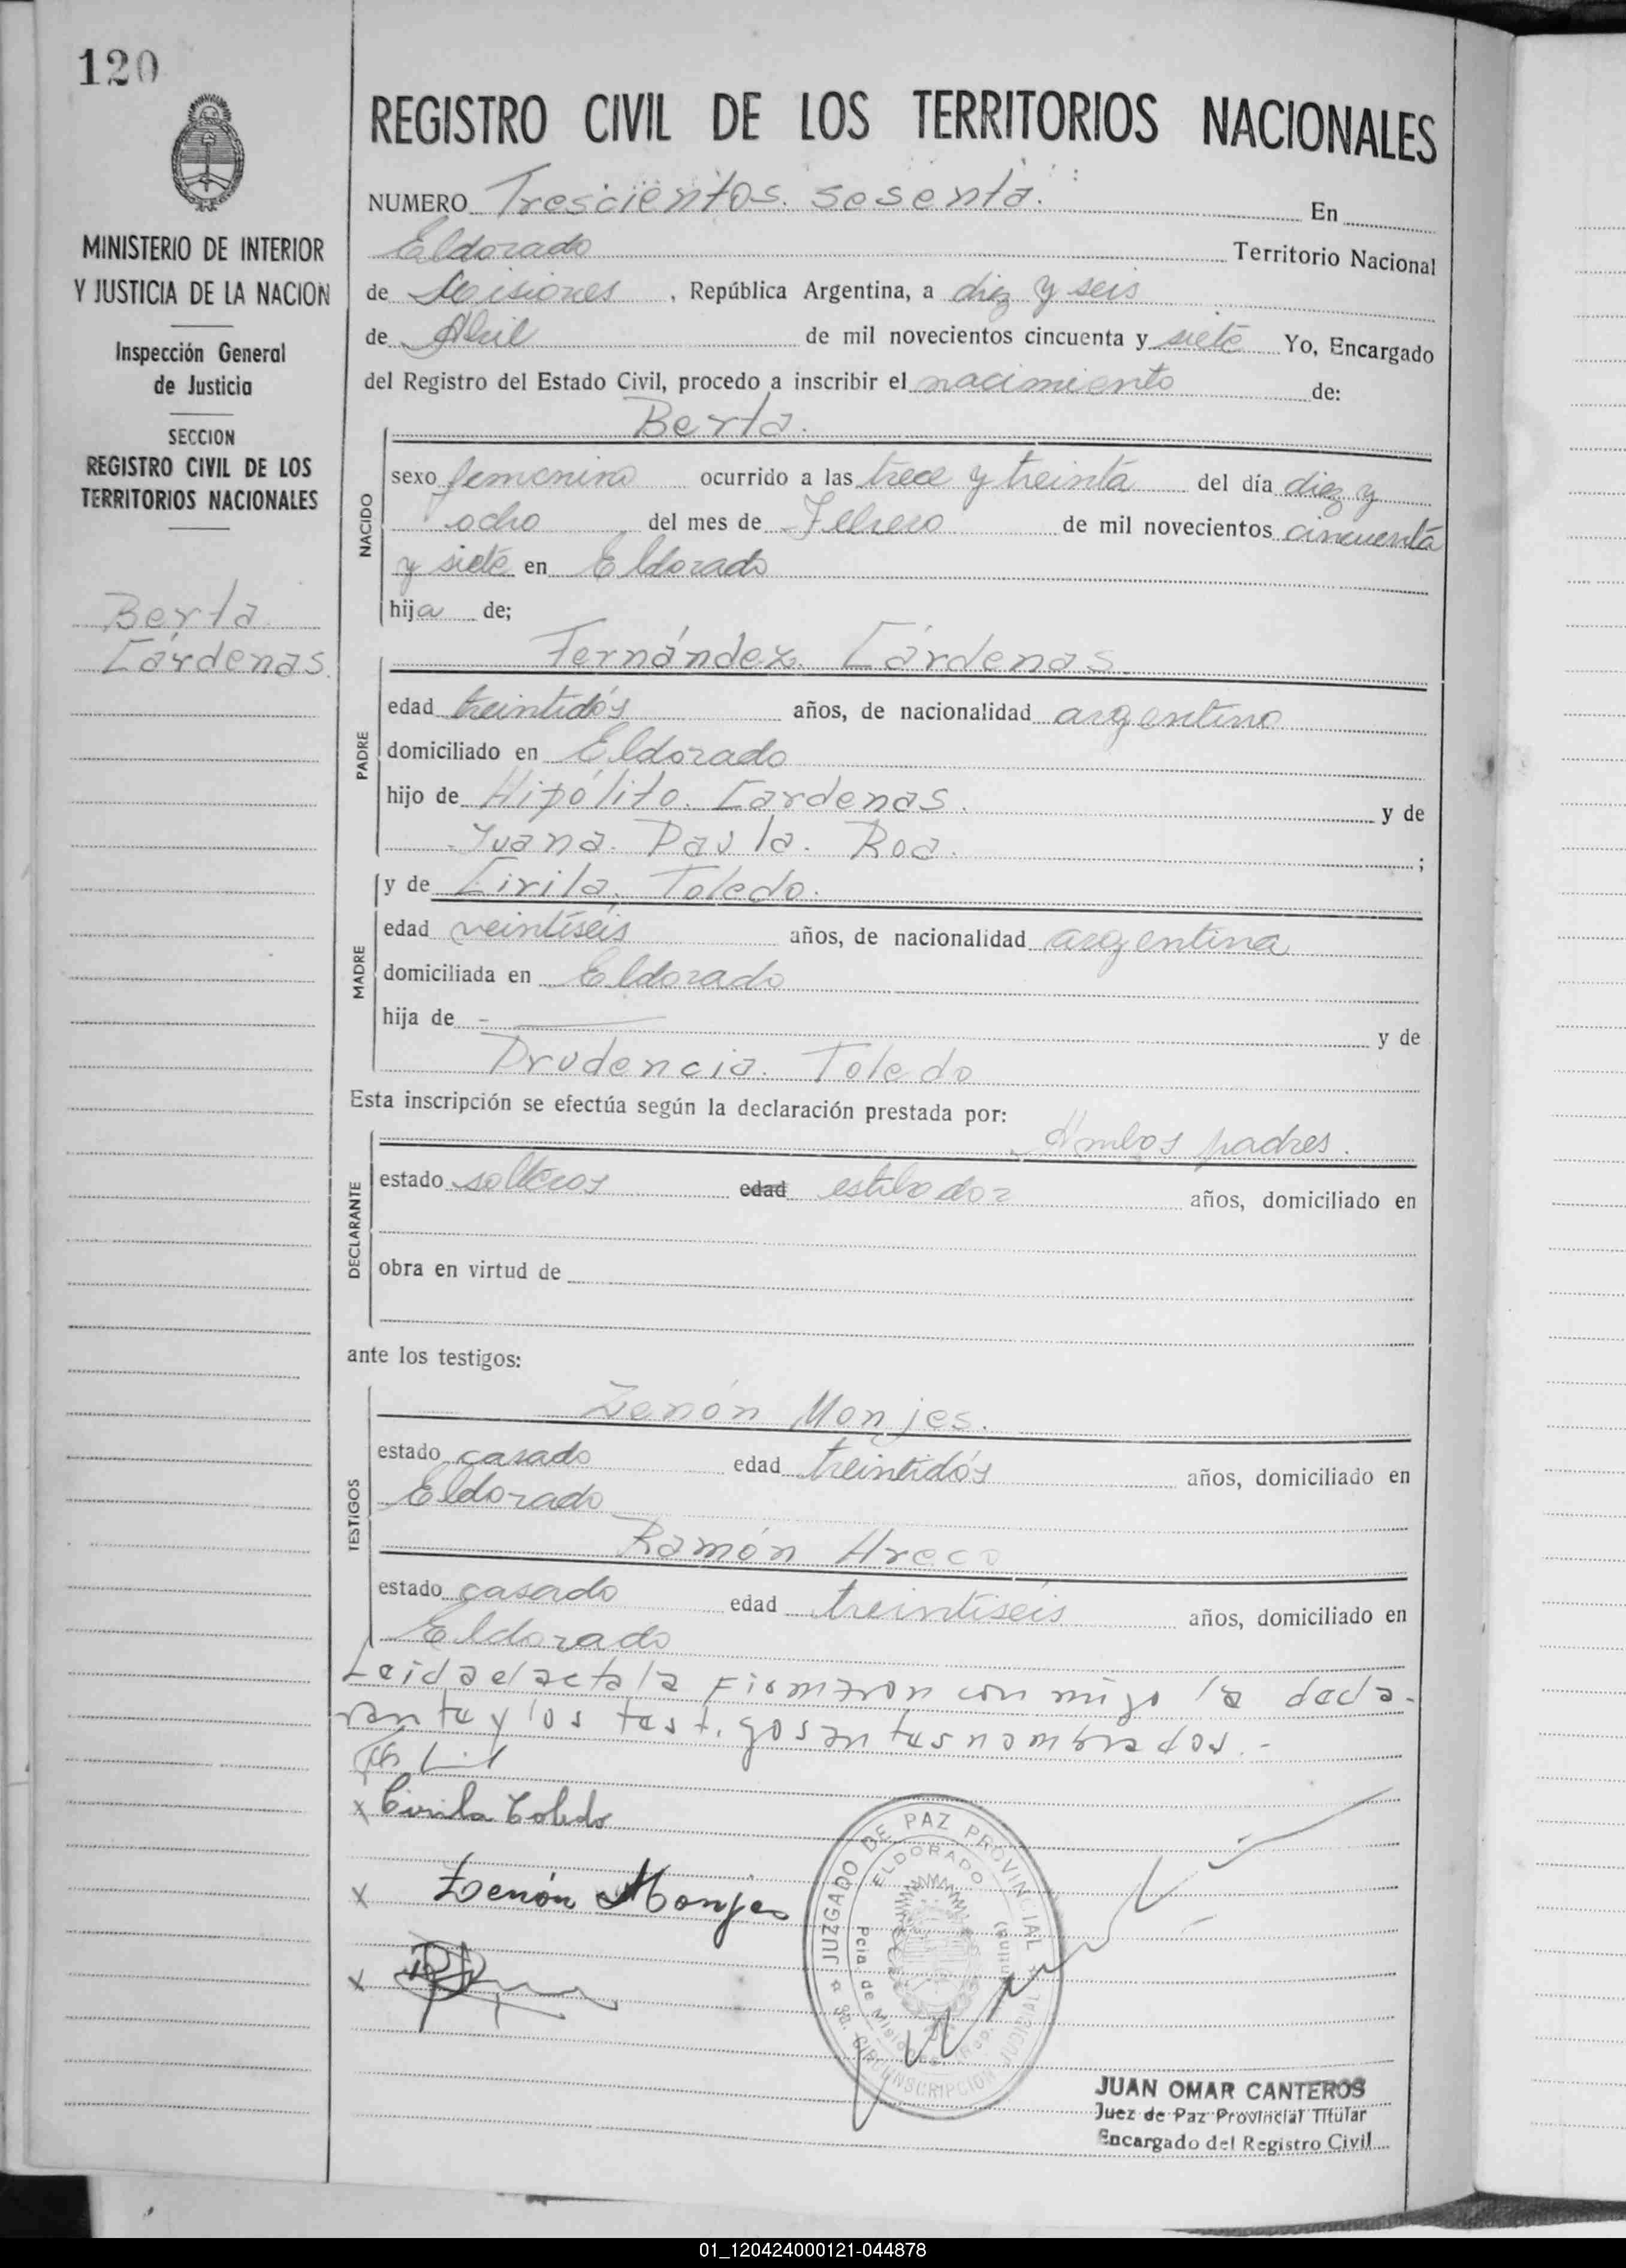 120
MINISTERIO DE INTERIOR
Y JUSTICIA DE LA NACION
Inspección General
de Justicia
SECCION
REGISTRO CIVIL DE LOS
TERRITORIOS NACIONALES
Berta
Cárdenas.
REGISTRO CIVIL DE LOS TERRITORIOS NACIONALES
NUMERO Trescientos. sesenta. En
Eldorado Territorio Nacional
de Misiones, República Argentina, a diez y seis
de Abril de mil novecientos cincuenta y siete Yo, Encargado
del Registro del Estado Civil, procedo a inscribir el nacimiento de:
Berta.
NACIDO
sexo femenino ocurrido a las trece y treinta del día diez y
ocho del mes de Febrero de mil novecientos cincuenta
y siete en Eldorado
hija de;
Fernández. Cárdenas.
PADRE
edad treintidós años, de nacionalidad argentino
domiciliado en Eldorado
hijo de Hipólito. Cardenas. y de
Juana. Paula. Roa. ;
y de Cirila, Toledo.
MADRE
edad veintiseis años, de nacionalidad argentina
domiciliada en Eldorado
hija de - y de
Prudencia. Toledo
Esta inscripción se efectúa según la declaración prestada por:
Ambos padres.
DECLARANTE
estado solteros edad estibador años, domiciliado en
obra en virtud de
ante los testigos:
Zenón Monjes.
TESTIGOS
estado casado edad treintidós años, domiciliado en
Eldorado
Ramón Areco
estado casado edad treintiseis años, domiciliado en
Eldorado
Leida el acta la firmaron conmigo la decla-
rante y los testigos antes nombrados.-
x Cirila Toledo
x Zenón Monjes
x
JUZGADO DE PAZ PROVINCIAL
ELDORADO
Pcia. de Misiones
CIRCUNSCRIPCION JUDICIAL
JUAN OMAR CANTEROS
Juez de Paz Provincial Titular
Encargado del Registro Civil
01_120424000121-044878